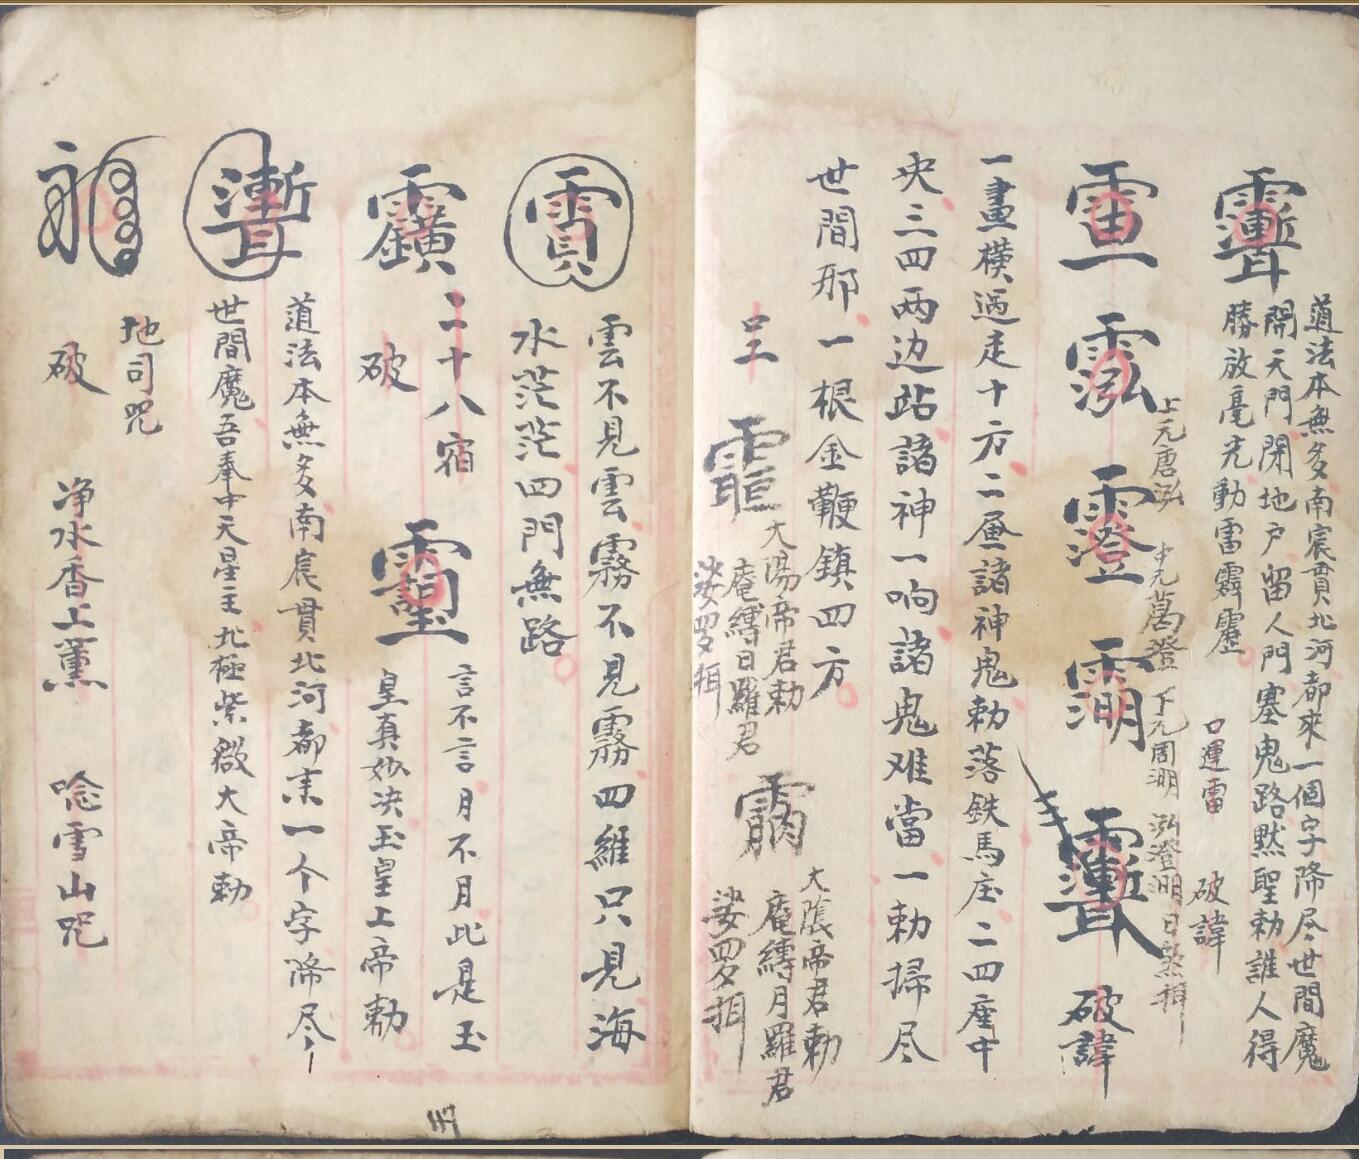 道法本無多南宸貫北河都來一個字降尽世間魔
開天門閉地户留人門塞鬼路黙聖勅誰人得
勝放毫光動雷霹靂
口運雷 破諱
上元唐泓 中元萬澄 下元周湖 泓澄湖日煞
破諱
一畫橫过走十方二画諸神鬼勅落鉄馬庄二四座中
央三四两边站諸神一响諸鬼难當一勅掃尽
世間邪一根金鞭鎮四方
大陽帝君勅
庵縛日羅君
娑罗
大陰帝君勅
庵縛月羅君
娑罗
雲不見雲霧不見霧四維只見海
水茫茫四門無路
二十八宿
破
言不言月不月此是玉
皇真妙决玉皇上帝勅
道法本無多南宸貫北河都来一个字降尽
世間魔吾奉中天星主北極紫微大帝勅
地司咒
破 净水香上薰 唸雪山咒